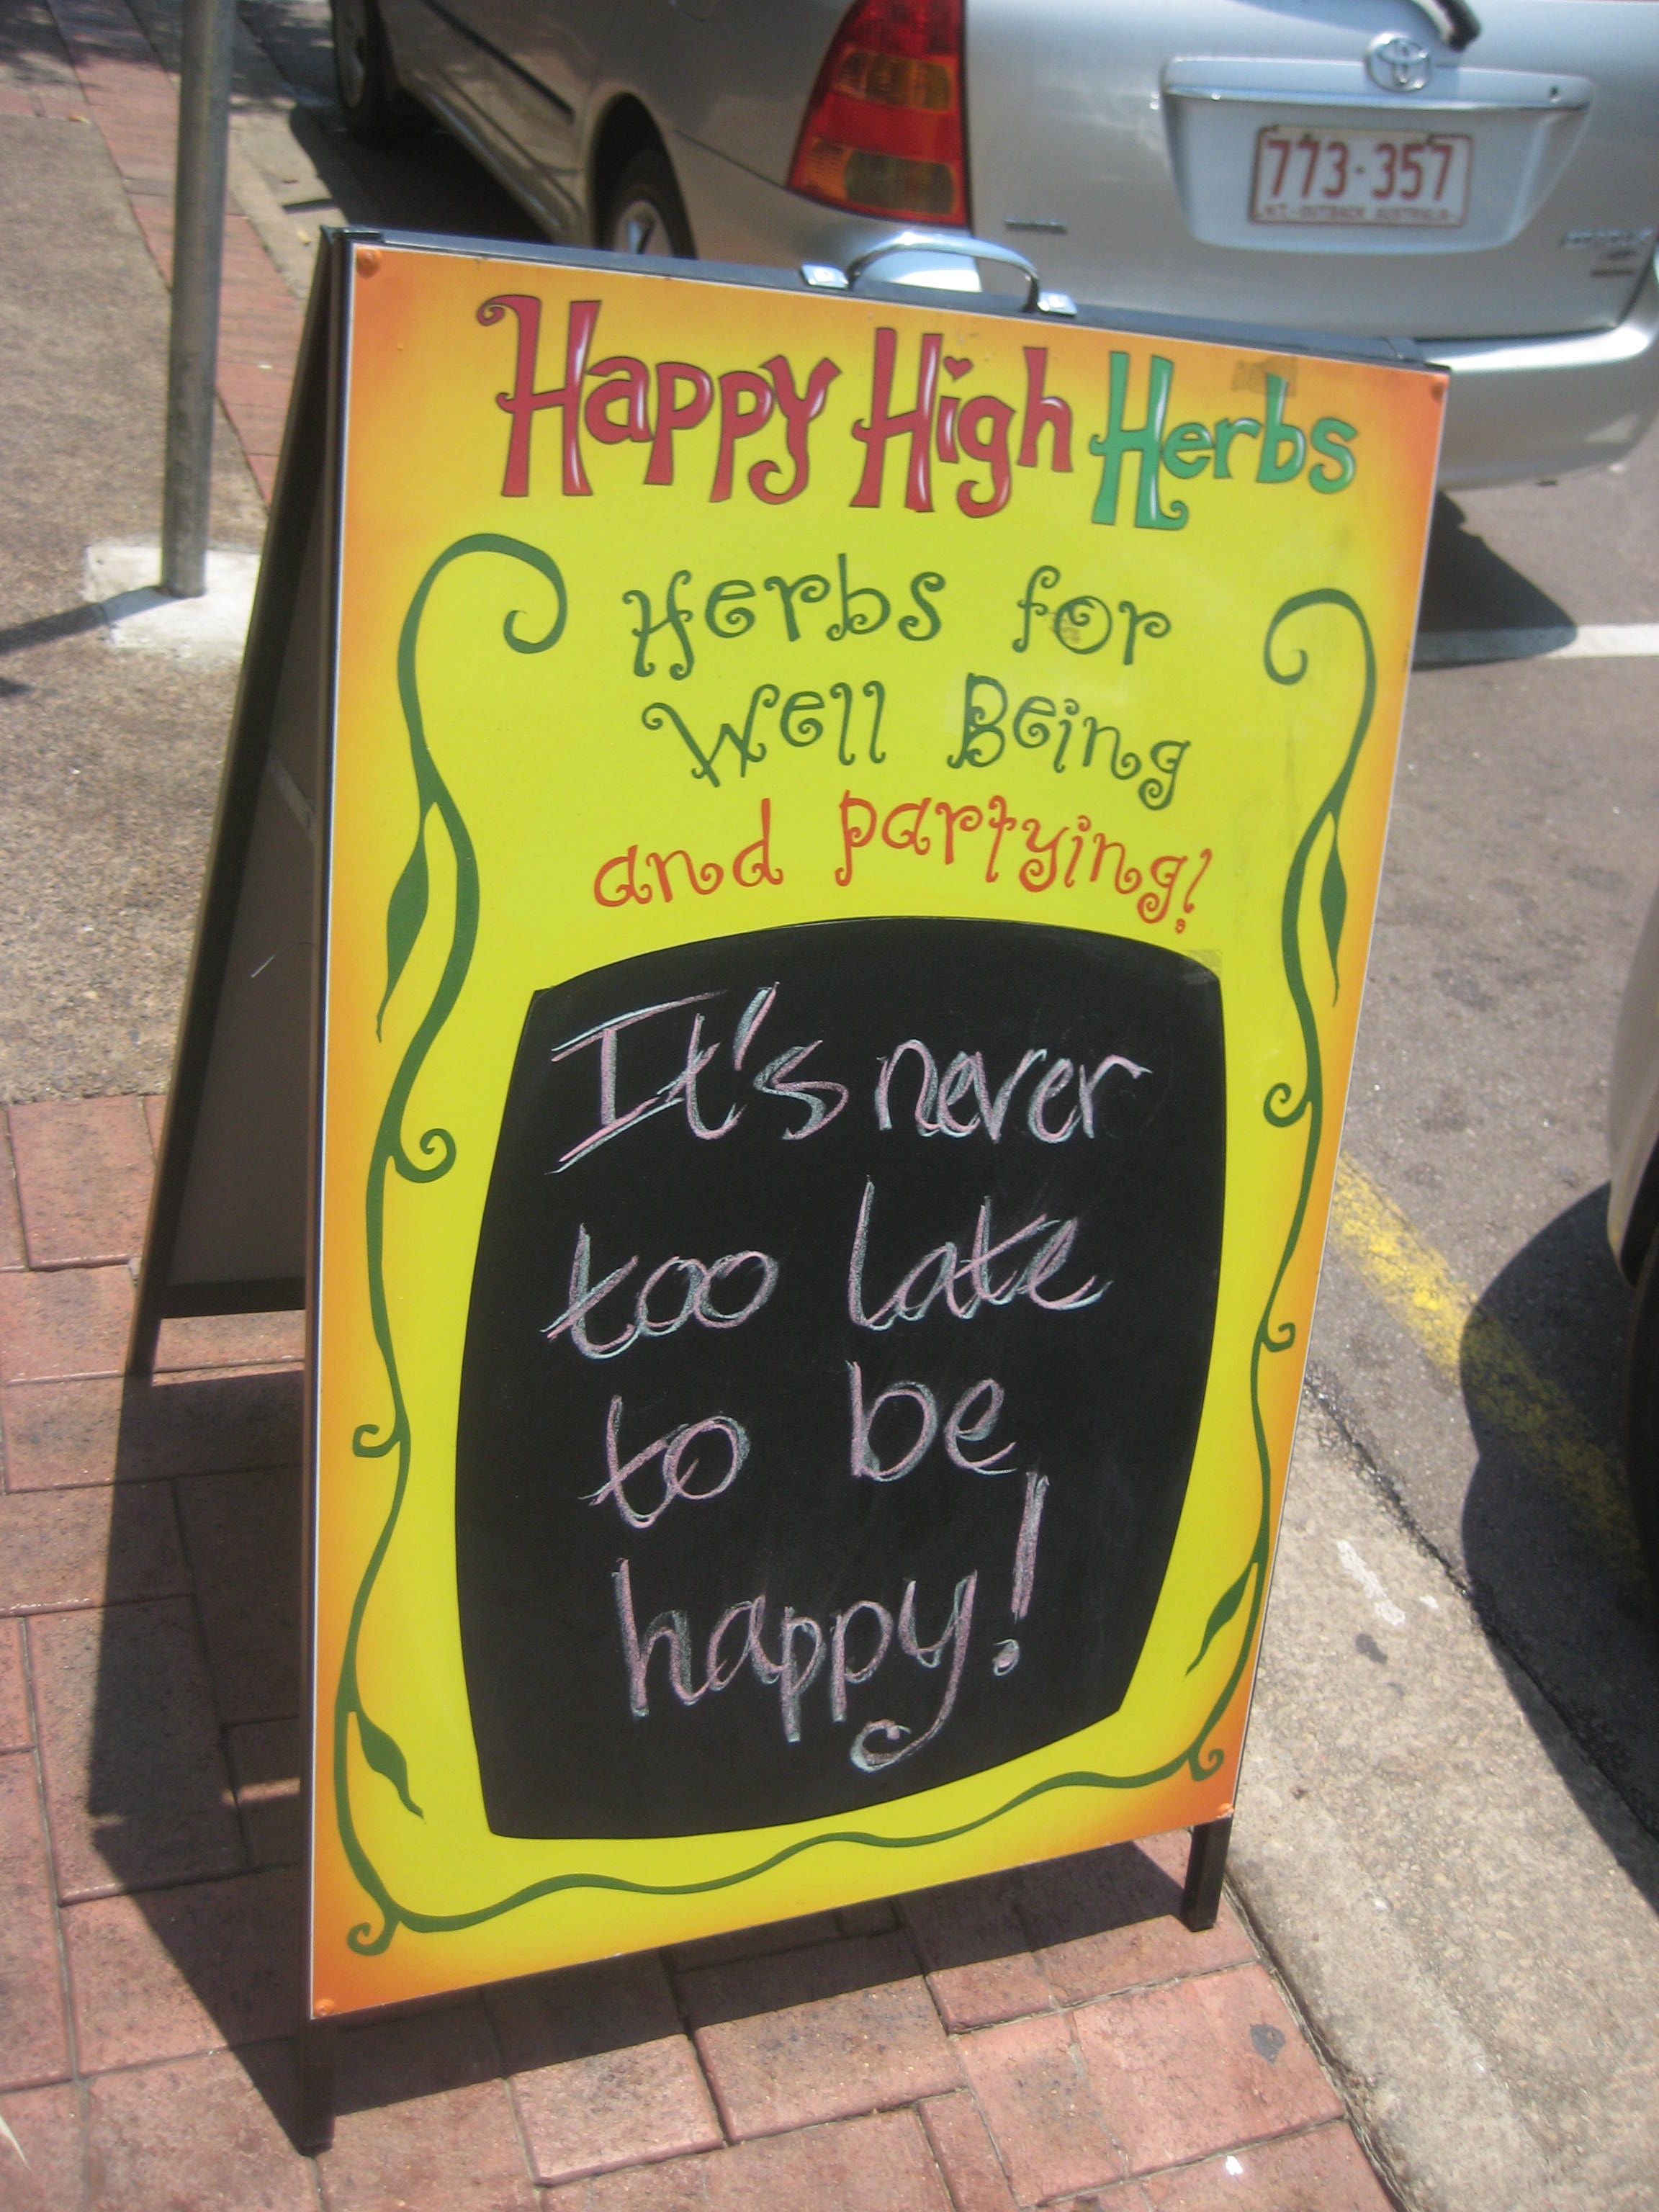 773·357
N.T. - OUTBACK AUSTRALIA
Happy High Herbs
Herbs for
Well Being
and partying!
It's never
too late
to be
happy!